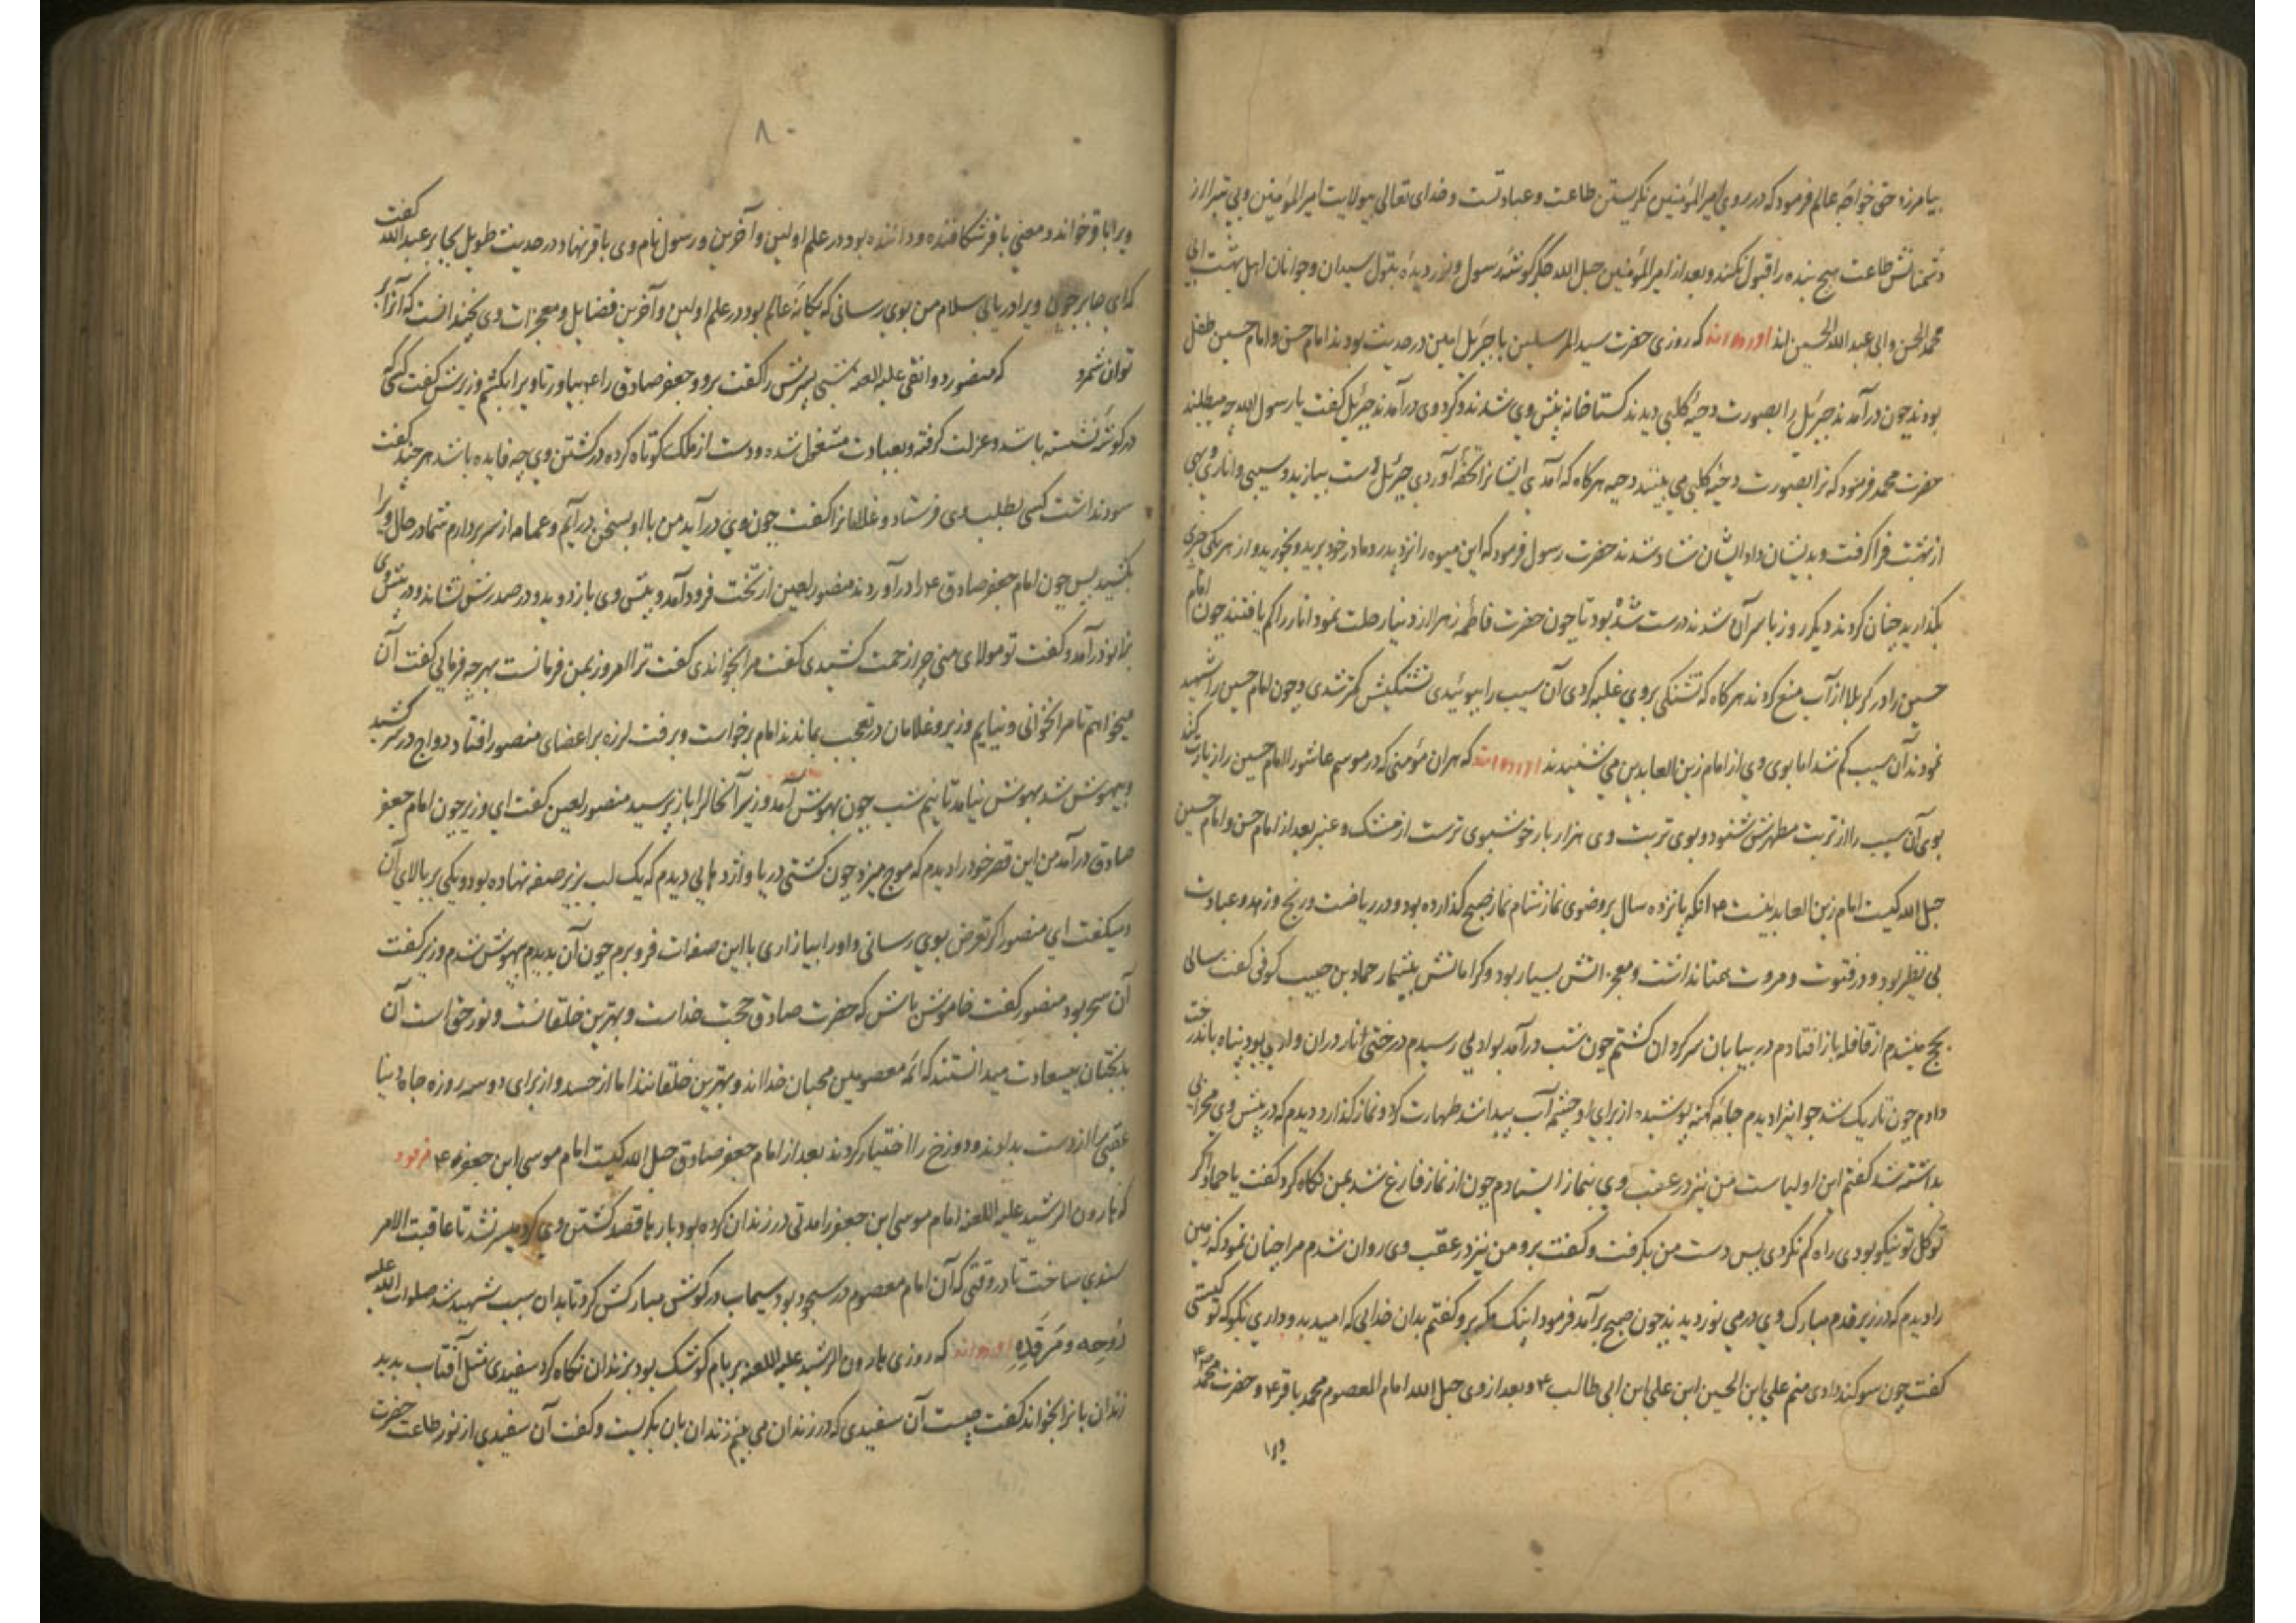 بیامرزد حتی خواجه عالم فرمود که در روی امیرالمؤمنین نگریستن طاعت و عبادتست و خدای تعالی بی ولایت امیرالمؤمنین و بی تبرا از
دشمنانش طاعت هیچ بنده را قبول نکند و بعد از امیرالمؤمنین حبل الله جگرگوشه رسول و نوردیده بتول سیدان و جوانان اهل بهشت ابی
محمد الحسن و ابی عبد الله الحسین اند اورده اند که روزی حضرت سید المرسلین با جبرئیل امین در حدیث بودند امام حسن و امام حسین طفل
بودند چون درآمدند جبرئیل را بصورت دحیه کلبی دیدند کستاخانه پیش وی شدند و کرد وی درآمدند جبرئیل کفت یا رسول الله چه میطلبند
حضرت محمد فرمود که ترا بصورت دحیه کلبی می بینند دحیه هرکاه که آمدی ایشانرا تحفه آوردی جبرئیل دست بیازید و سیبی و اناری و بهی
از بهشت فرا کرفت و بدیشان داد ایشان شاد شدند حضرت رسول فرمود که این میوه را نزد پدر و مادر خود برید و بخورید و از هر یکی چیزی
بگذارید چنان کردند دیگر روز با سر آن شدند درست شده بود تا چون حضرت فاطمه زهرا از دنیا رحلت نمود انار را کم یافتند چون امام
حسین را در کربلا از آب منع کردند هرکاه که تشنکی بر وی غلبه کردی آن سیب را ببوئیدی تشنکیش کمتر شدی و چون امام حسین را شهید
نمودند آن سیب کم شد اما بوی وی از امام زین العابدین می شنیدند اورده اند که هر آن مؤمنی که در موسم عاشورا امام حسین را زیارت کند
بوی آن سیب را از تربت مطهرش شنود و بوی تربت وی هزار بار خوشبوی ترست از مشک و عنبر بعد از امام حسن و امام حسین
حبل الله کیست امام زین العابدینست ع انکه پانزده سال بر وضوی نماز شام نماز صبح کذارده بود و در ریاضت و رنج و زهد و عبادت
بی نظیر بود و در فتوت و مروت همتا نداشت و معجزاتش بسیار بود و کراماتش بیشمار حماد بن حبیب کوفی کفت سالی
بحج میشدم از قافله باز افتادم در بیابان سرکردان کشتم چون شب درآمد بوادیی رسیدم درختی انار دران وادیی بود پناه باندرخت
دادم چون تاریک شد جوانیرا دیدم جامه کهنه پوشیده از برای او چشمه آب پیدا شد طهارت کرد و نماز کذارد دیدم که در پیش وی محرابی
بداشته شد کفتم این اولیاست من نیز در عقب وی بنماز ایستادم چون از نماز فارغ شد بمن نکاه کرد کفت یا حماد اکر
توکل تو نیکو بودی راه کم نکردی پس دست من بکرفت و کفت برو من نیز در عقب وی روان شدم مرا چنان نمود که زمین
را دیدم که در زیر قدم مبارک وی در می نوردیدند چون صبح برآمد فرمود اینک مکه برو کفتم بدان خدایی که امید بدو داری بگو که تو کیستی
کفت چون سوکند دادی منم علی ابن الحسین ابن علی ابن ابی طالب ع و بعد از وی حبل الله امام المعصوم محمد باقر ع و حضرت محمد
ویرا
۸۰
ویرا باقر خواند و معنی باقر شکافنده و داننده بود در علم اولین و آخرین و رسول نام وی باقر نهاد در حدیث طویل بجابر عبد الله کفت
که ای جابر چون ویرا دریابی سلام من بوی رسانی که یکانه عالم بود در علم اولین و آخرین فضایل و معجزات وی نچندانست که آنرا
توان شمرد که منصور دوانقی علیه اللعنه شبی وزیرش را کفت برو و جعفر صادق را ع بیاور تا ویرا بکشم وزیرش کفت کسی که
در کوشه نشسته باشد و عزلت کرفته و بعبادت مشغول شده و دست از ملک کوتاه کرده در کشتن وی چه فایده باشد هر چند کفت
سود نداشت کسی بطلب وی فرستاد و غلامانرا کفت چون وی درآید من با او بسخن درآیم و عمامه از سر بردارم شما در حال ویرا
بکشید پس چون امام جعفر صادق ع را درآوردند منصور لعین از تخت فرود آمد و پیش وی باز دوید و در صدرش نشاند و در پیش وی
بزانو درآمد و کفت تو مولای منی چرا زحمت کشیدی کفت مرا بخواندی کفت ترا امروز بمن فرمانست بهرچه فرمایی کفت آن
میخواهم تا مرا نخوانی و نیایم وزیر و غلامان در تعجب بماندند امام برخواست و برفت لرزه بر اعضای منصور افتاد دواج در سر کشید
و بیهوش شد بهوش نیامد تا نیم شب چون بهوش آمد وزیر آنحالرا باز پرسید منصور لعین کفت ای وزیر چون امام جعفر
صادق درآمد من این قصر خود را دیدم که موج میزد چون کشتی دریا و اژدهایی دیدم که یک لب بر زیر صفه نهاده بود و یکی بر بالای آن
و میکفت ای منصور اکر تعرض بوی رسانی و او را بیازاری با این صفه ات فرو برم چون آن بدیدم بیهوش شدم وزیر کفت
آن سحر بود منصور کفت خاموش باش که حضرت صادق حجت خداست و بهترین خلقانست و نور حق است آن
بدبختان بیسعادت میدانستند که ائمه معصومین محبان خدااند و بهترین خلقانند اما از حسد و از برای دو سه روزه جاه دنیا
عقبی را از دست بدادند و دوزخ را اختیار کردند بعد از امام جعفر صادق حبل الله کیست امام موسی ابن جعفر ع
که هارون الرشید علیه اللعنه امام موسی ابن جعفر را مدتی در زندان کرده بود بارها قصد کشتن وی کرد میسر نشد تا عاقبت الامر
سندی ساخت تا در وقتی که آن امام معصوم در سجود بود سیماب در کوش مبارکش کرد تا بدان سبب شهید شد صلوات الله علیه
روحه و مرقده اورده اند که روزی هارون الرشید علیه اللعنه بر بام کوشک بود بزندان نکاه کرد سفیدی مثل آفتاب بدید
زندان بانرا بخواند کفت چیست آن سفیدی که در زندان می بینم زندان بان بکریست و کفت آن سفیدی از نور طلعت حضرت